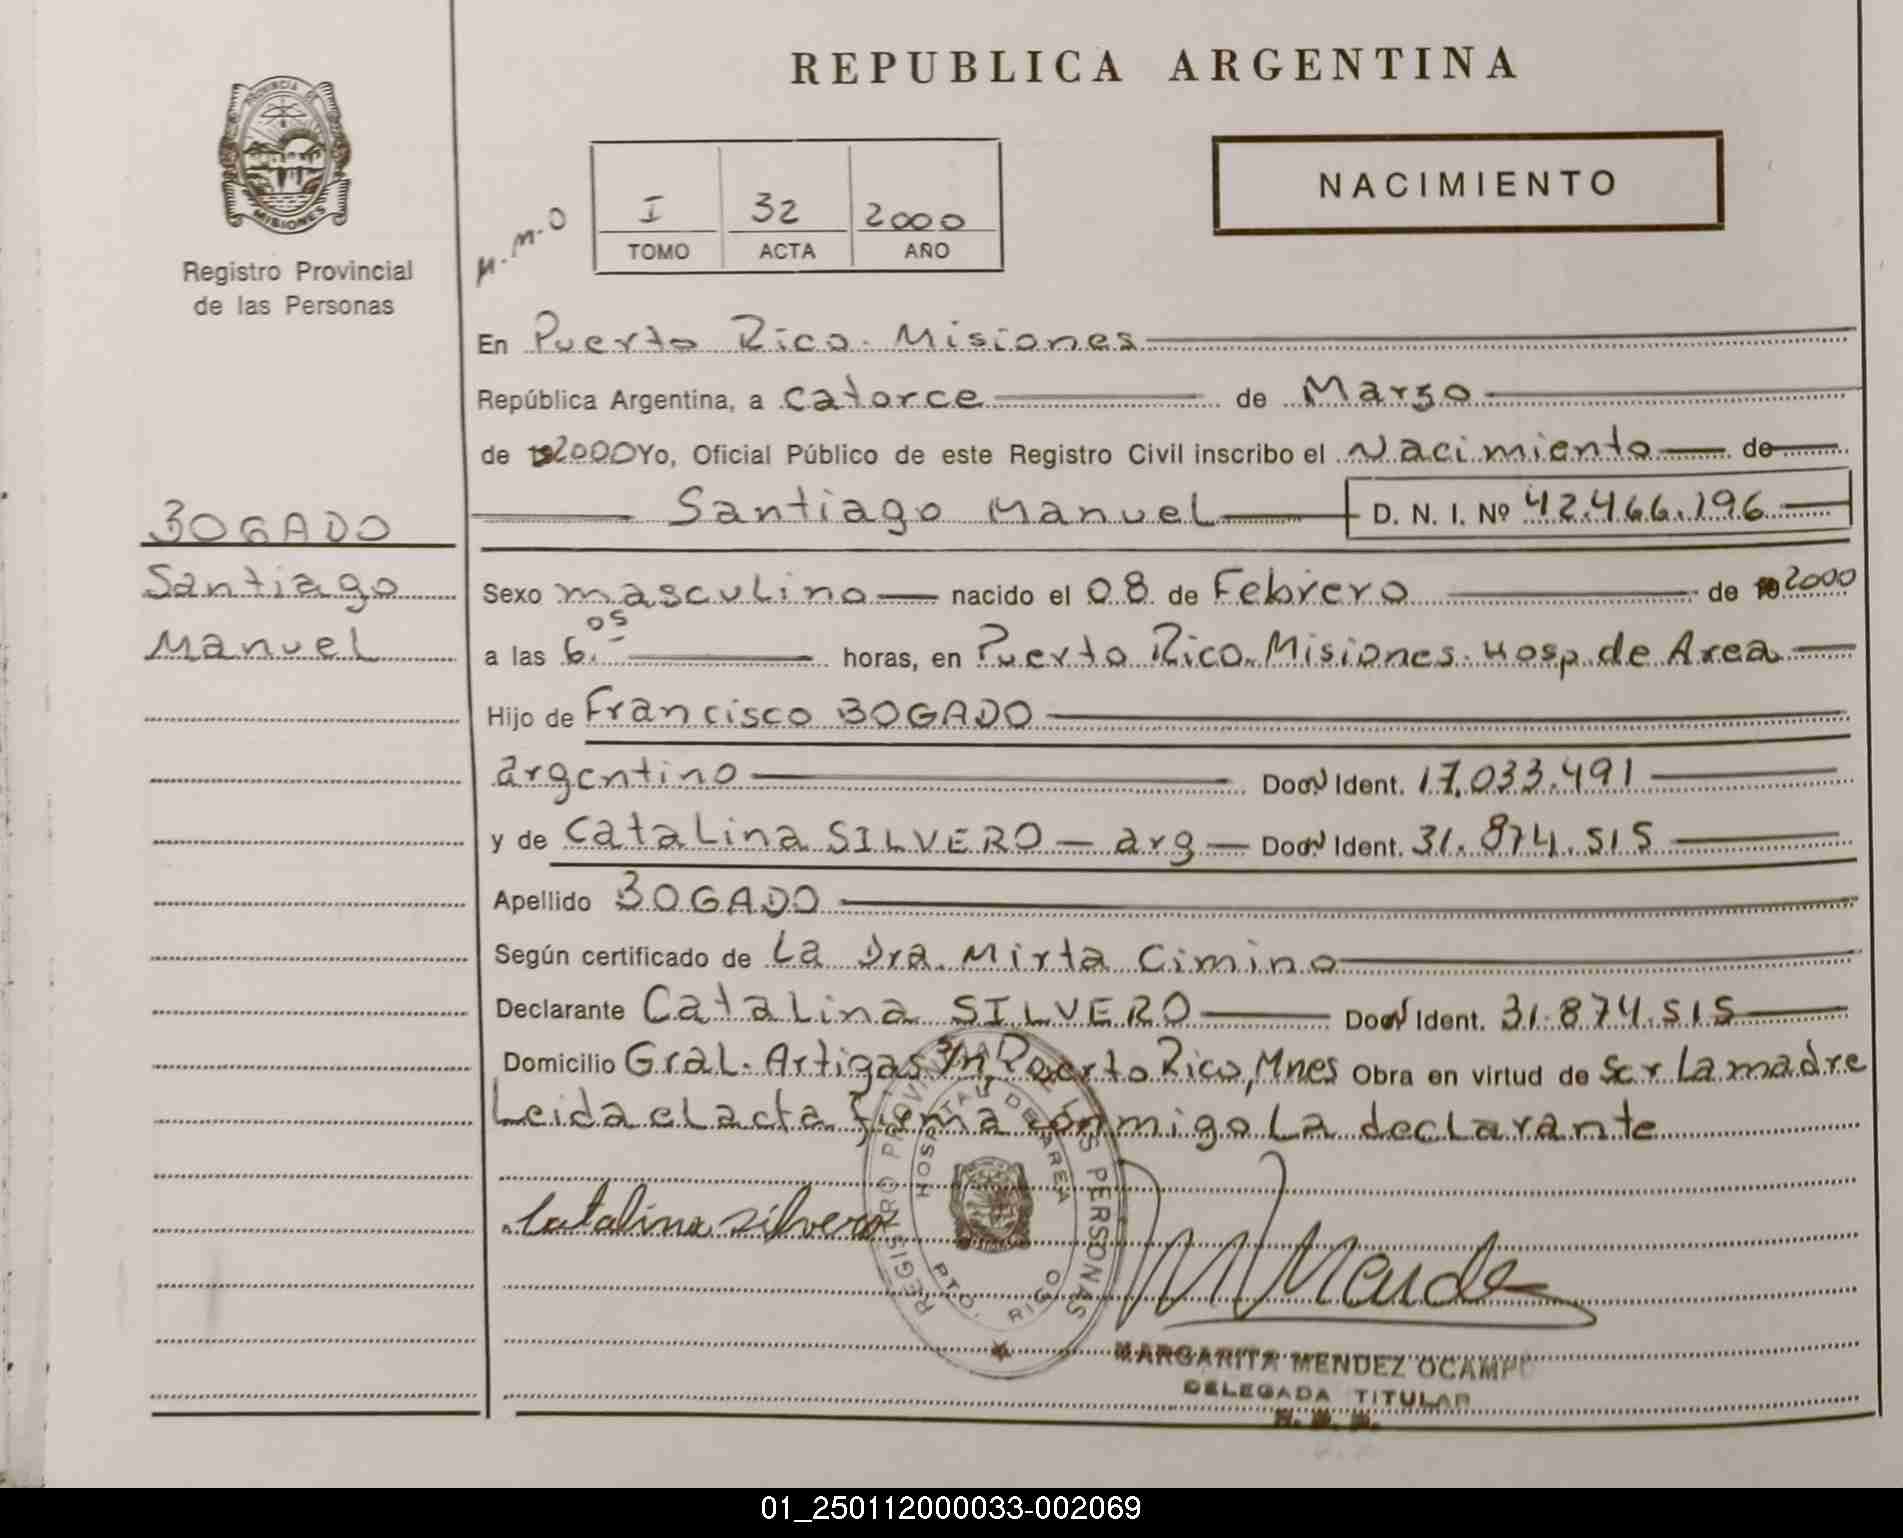 REPUBLICA ARGENTINA
PROVINCIA DE
MISIONES
Registro Provincial
de las Personas
M.M.O
I 32 2000
TOMO ACTA AÑO
NACIMIENTO
En Puerto Rico. Misiones
República Argentina, a catorce de Marzo
de 2000 Yo, Oficial Público de este Registro Civil inscribo el Nacimiento de
Santiago Manuel D. N. I. Nº 42.466.196
BOGADO
Santiago
Manuel
Sexo masculino nacido el 08 de Febrero de 2000
a las 6.05 horas, en Puerto Rico. Misiones. Hosp. de Area
Hijo de Francisco BOGADO
argentino Doc. N Ident. 17.033.491
y de Catalina SILVERO — arg — Doc. N Ident. 31.874.515
Apellido BOGADO
Según certificado de La Dra. Mirta Cimino
Declarante Catalina SILVERO Doc. N Ident. 31.874.515
Domicilio Gral. Artigas s/n Puerto Rico, Mnes Obra en virtud de Ser La madre
Leida el acta firma conmigo La declarante
Catalina silvero
REGISTRO PROVINCIAL DE LAS PERSONAS
HOSPITAL DE AREA
PTO. RICO
M Mende
MARGARITA MENDEZ OCAMPO
DELEGADA TITULAR
01_250112000033-002069